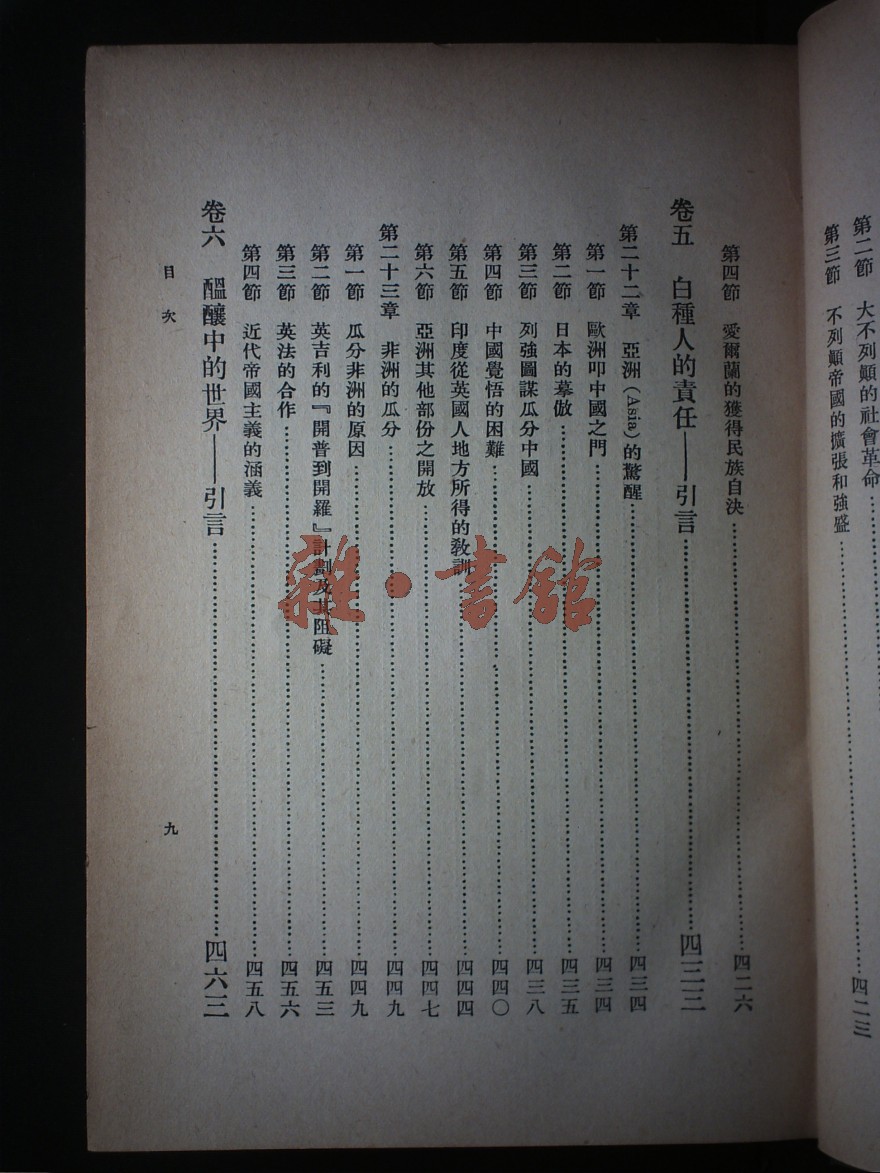 第二節　大不列顛的社會革命……四二三
第三節　不列顛帝國的擴張和強盛
第四節　愛爾蘭的獲得民族自決……四二六
卷五　白種人的責任——引言……四三三
第二十二章　亞洲（Asia）的驚醒……四三四
第一節　歐洲叩中國之門……四三四
第二節　日本的摹倣……四三五
第三節　列強圖謀瓜分中國……四三八
第四節　中國覺悟的困難……四四〇
第五節　印度從英國人地方所得的教訓……四四四
第六節　亞洲其他部份之開放……四四七
第二十三章　非洲的瓜分……四四九
第一節　瓜分非洲的原因……四四九
第二節　英吉利的『開普到開羅』計劃及其阻礙……四五三
第三節　英法的合作……四五六
第四節　近代帝國主義的涵義……四五八
卷六　醞釀中的世界——引言……四六三
目次
九
雜·書館